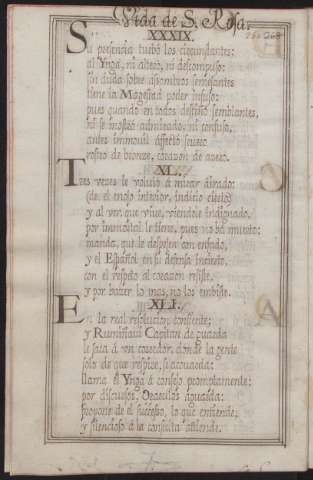 Vida de S. Rosa.
XXXIX.
Su presencia turbó los circunstantes:
al Ynga, ni alteró, ni descompuso:
sin duda sobre assombros semejantes
tiene la Magestad poder infuso:
pues quando en todos semblantes,
ni se mostró admirado, ni confuso,
antes immobil affectó severo
rostro de bronze, corazon de azero.
XL.
Tres vezes le volvió a mirar ayrado:
(de el enojo interior, indicio
y al ver que vive, viendole indignado,
por immortal le tiene, pues no ha muerto:
manda, que le despejen con enfado,
y el Español en su defensa incierto,
con el respeto al corazon resiste,
y por hazer lo mas, no los embiste.
XLI.
En la real resolucion, consiente;
y Rumiñaui Capitan de guarda
le saca á un corredor, donde la gente
solo de que respire, si acouarda:
llama el Ynga á consejo promptamente:
por discursos, Oraculos aguarda:
propone de el successo, lo que entiende,
y silencioso a la consulta attiende.